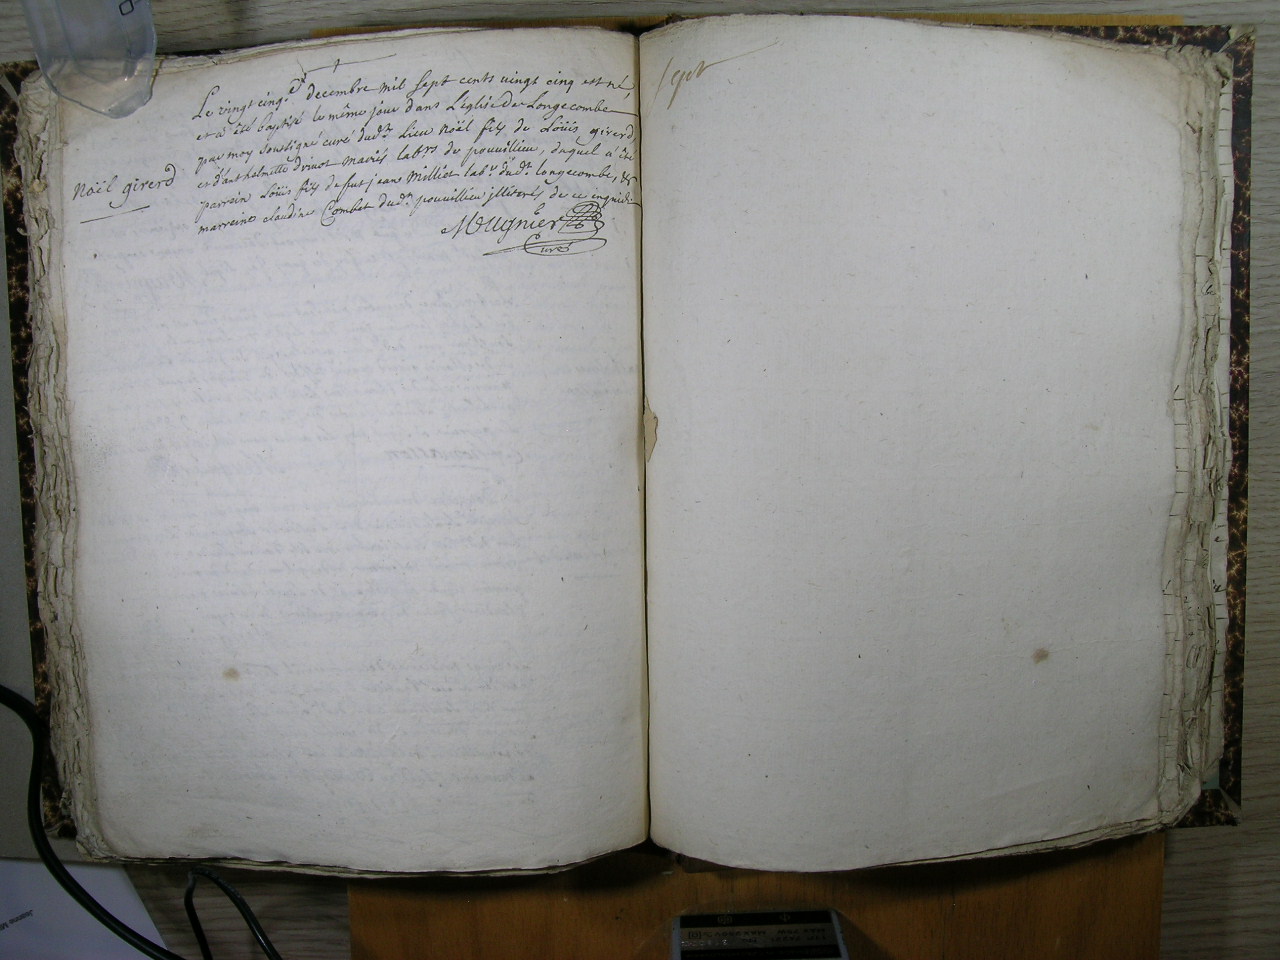 Le vingt cinq.e decembre mil sept cents vingt cinq est né,
et a été baptisé le même jour dans L'église de Longecombe
par moy soussigné curé dudt. Lieu Noël fils de Loüis girerd,
et d'anthelmette drivot mariés labrs. de pouvillieu, duquel a été
parrein Loüis fils de feut jean Milliet labr. dudt. longecombe, &
marreine claudine Combet dudt. pouvillieu illiterés, de ce enquis
Mugnier
Curé
Noël girerd
sept